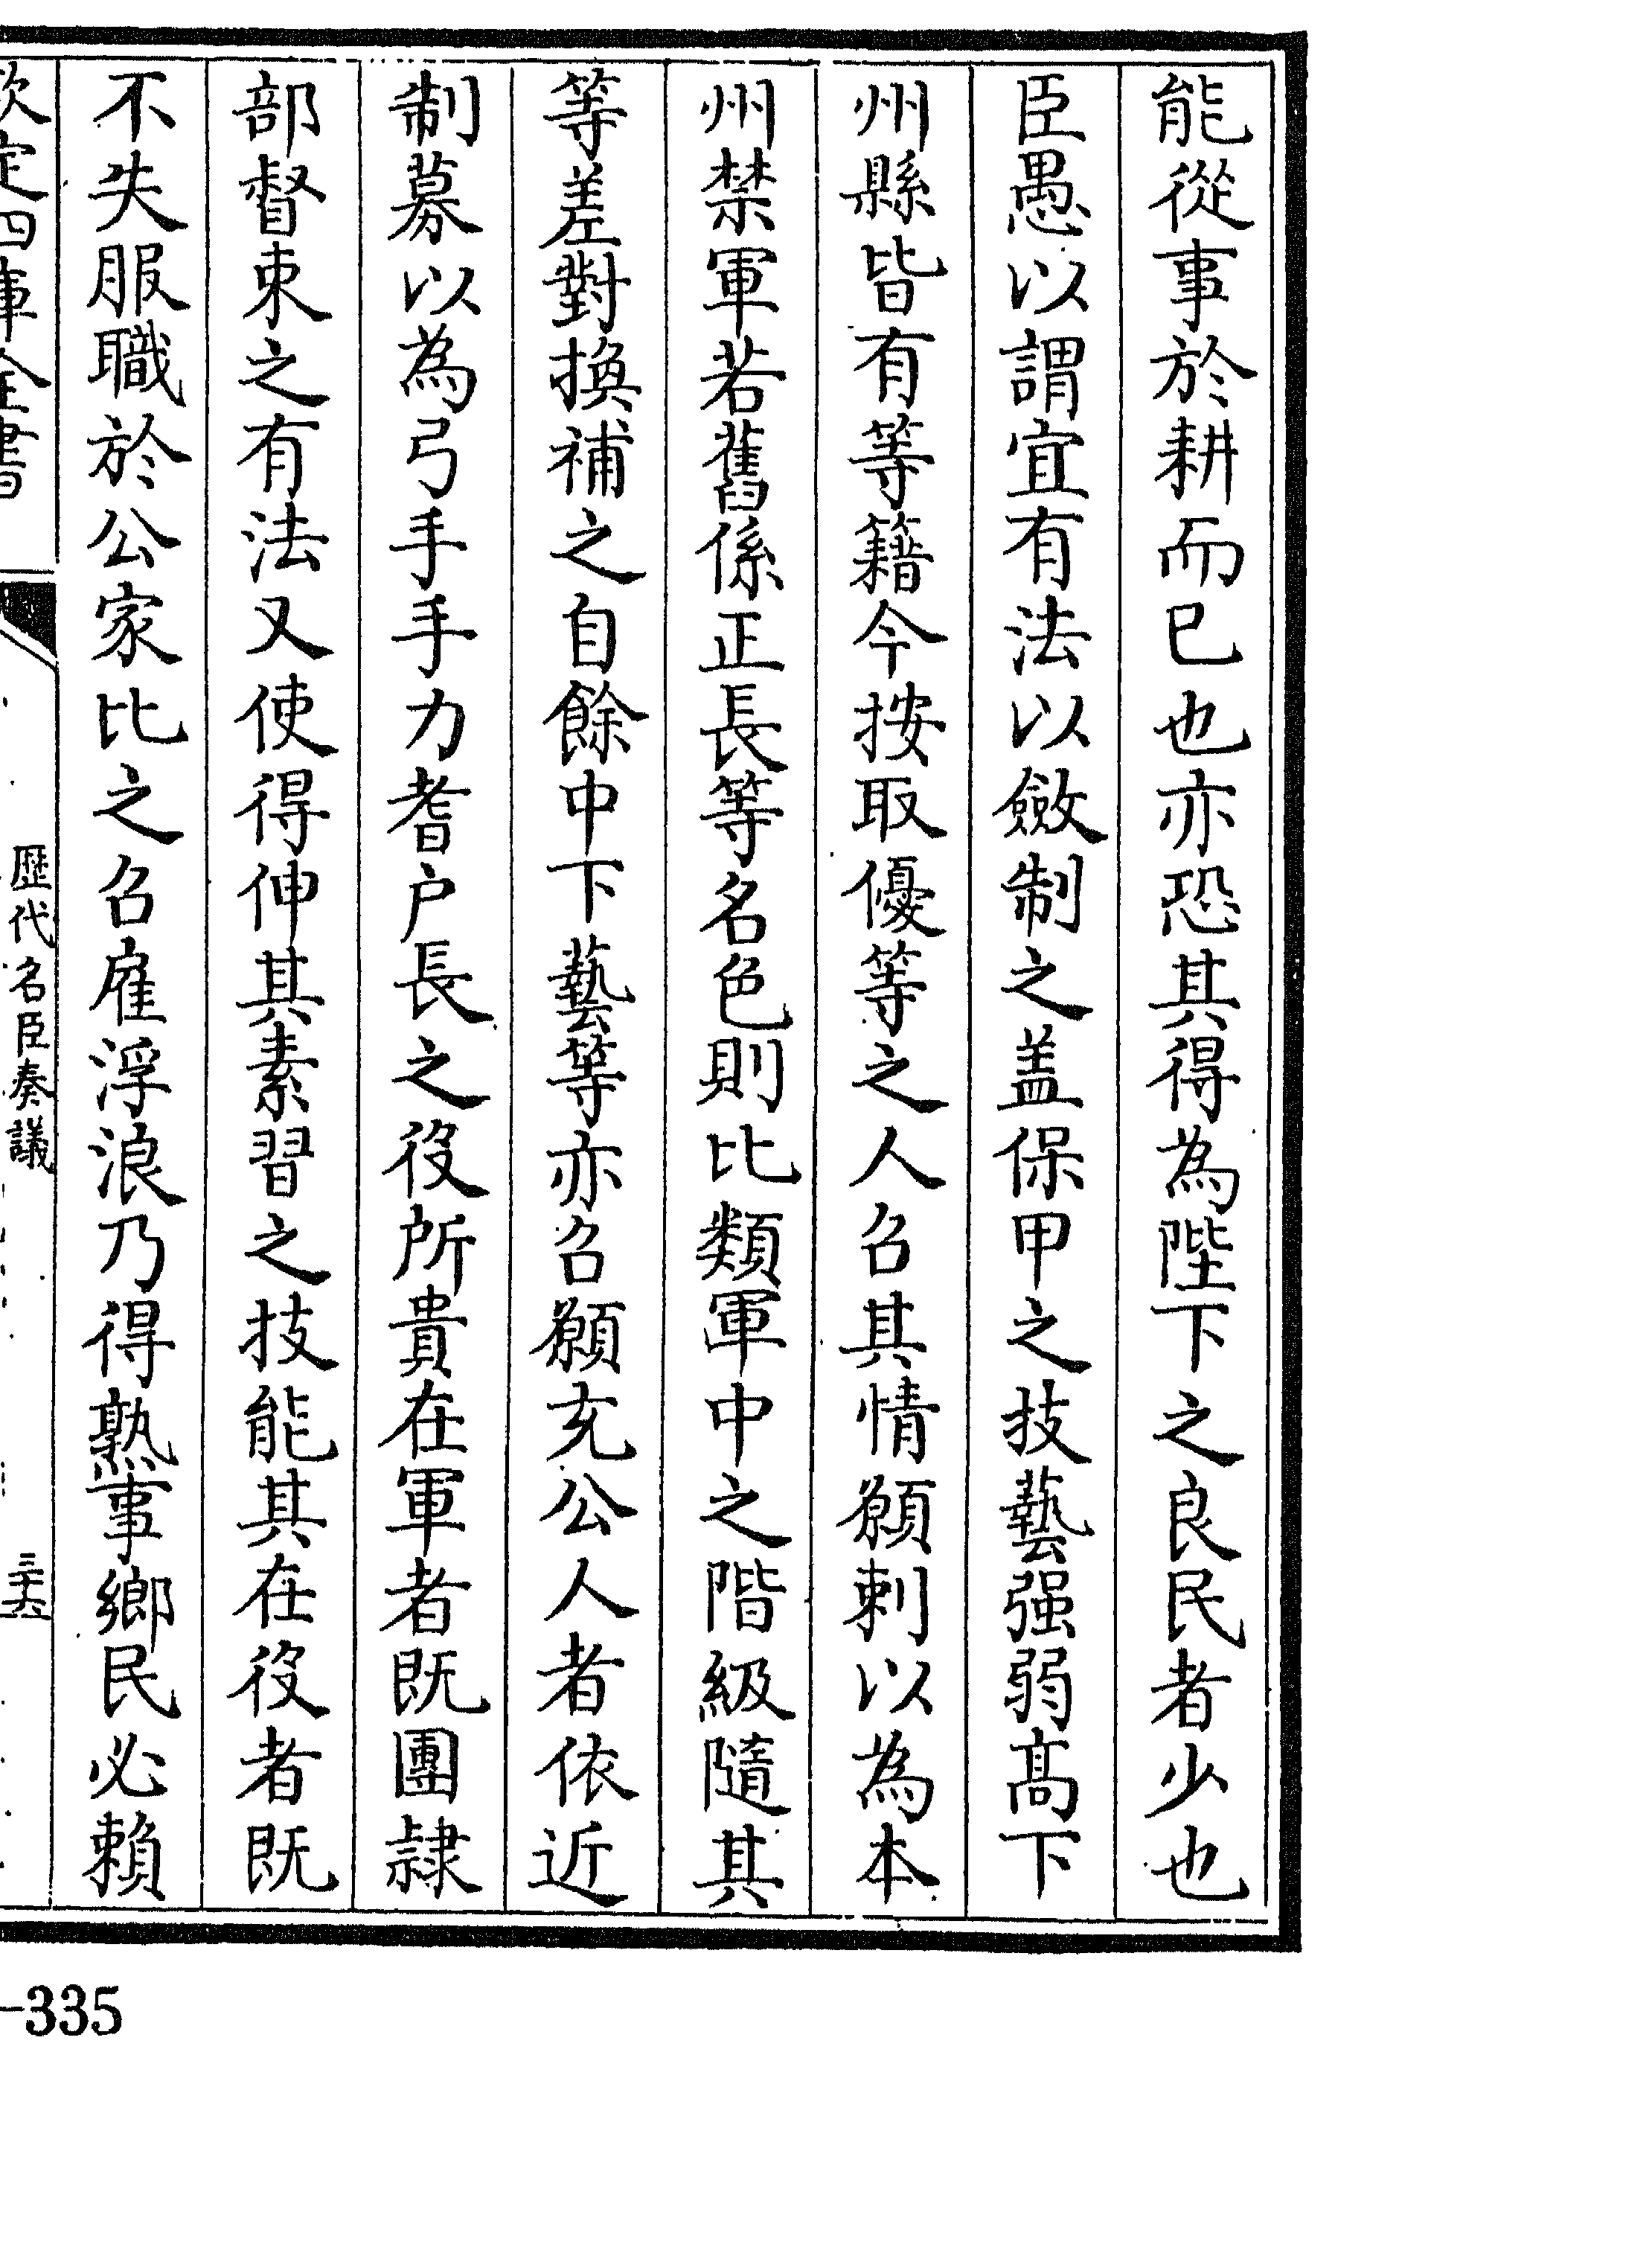 能從事於耕而已也亦恐其得為陛下之良民者少也
臣愚以謂宜有法以斂制之盖保甲之技藝强弱高下
州縣皆有等籍今按取優等之人召其情願刺以為本
州禁軍若舊係正長等名色則比類軍中之階級隨其
等差對換補之自餘中下藝等亦召願充公人者依近
制募以為弓手手力耆户長之役所貴在軍者既團隸
部督束之有法又使得伸其素習之技能其在役者既
不失服職於公家比之召雇浮浪乃得熟事鄉民必賴
欽定四庫全書
歴代名臣奏議
三十六
-335